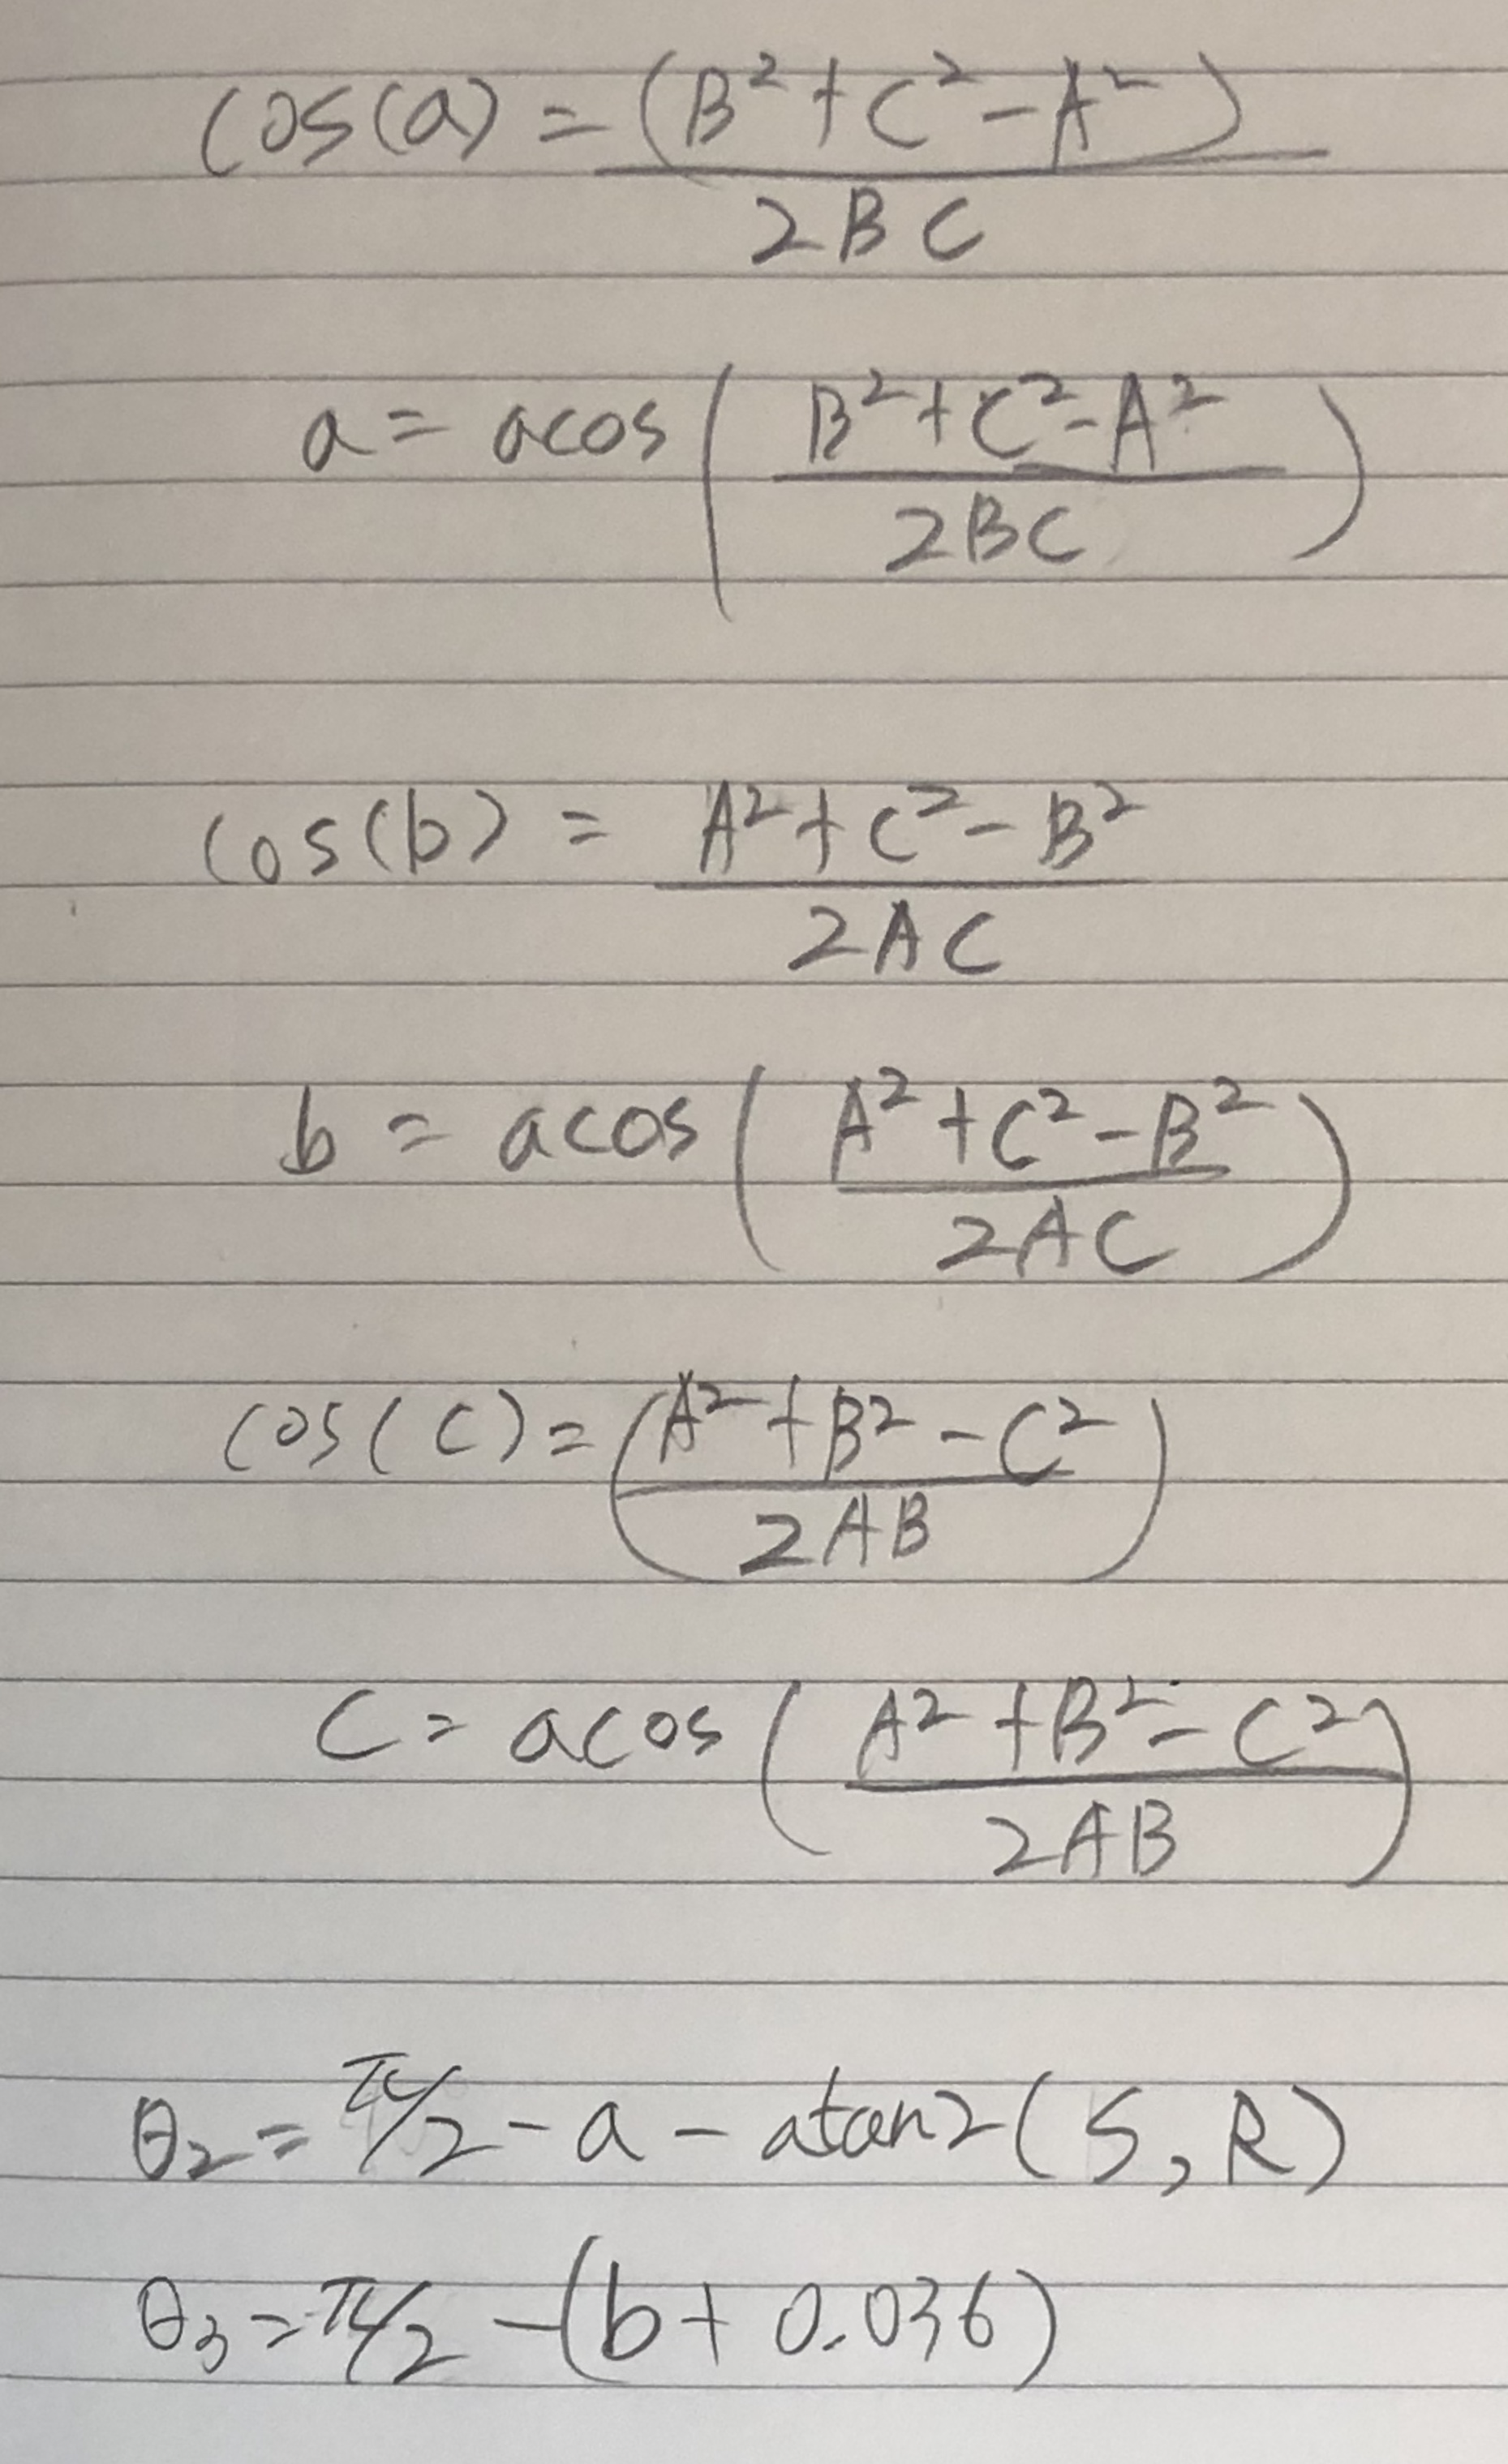 cos(a) = (B² + C² - A²) / 2BC
a = acos( (B² + C² - A²) / 2BC )
cos(b) = (A² + C² - B²) / 2AC
b = acos( (A² + C² - B²) / 2AC )
cos(c) = ( (A² + B² - C²) / 2AB )
c = acos( (A² + B² - C²) / 2AB )
θ₂ = π/2 - a - atan2(S, R)
θ₃ = π/2 - (b + 0.036)